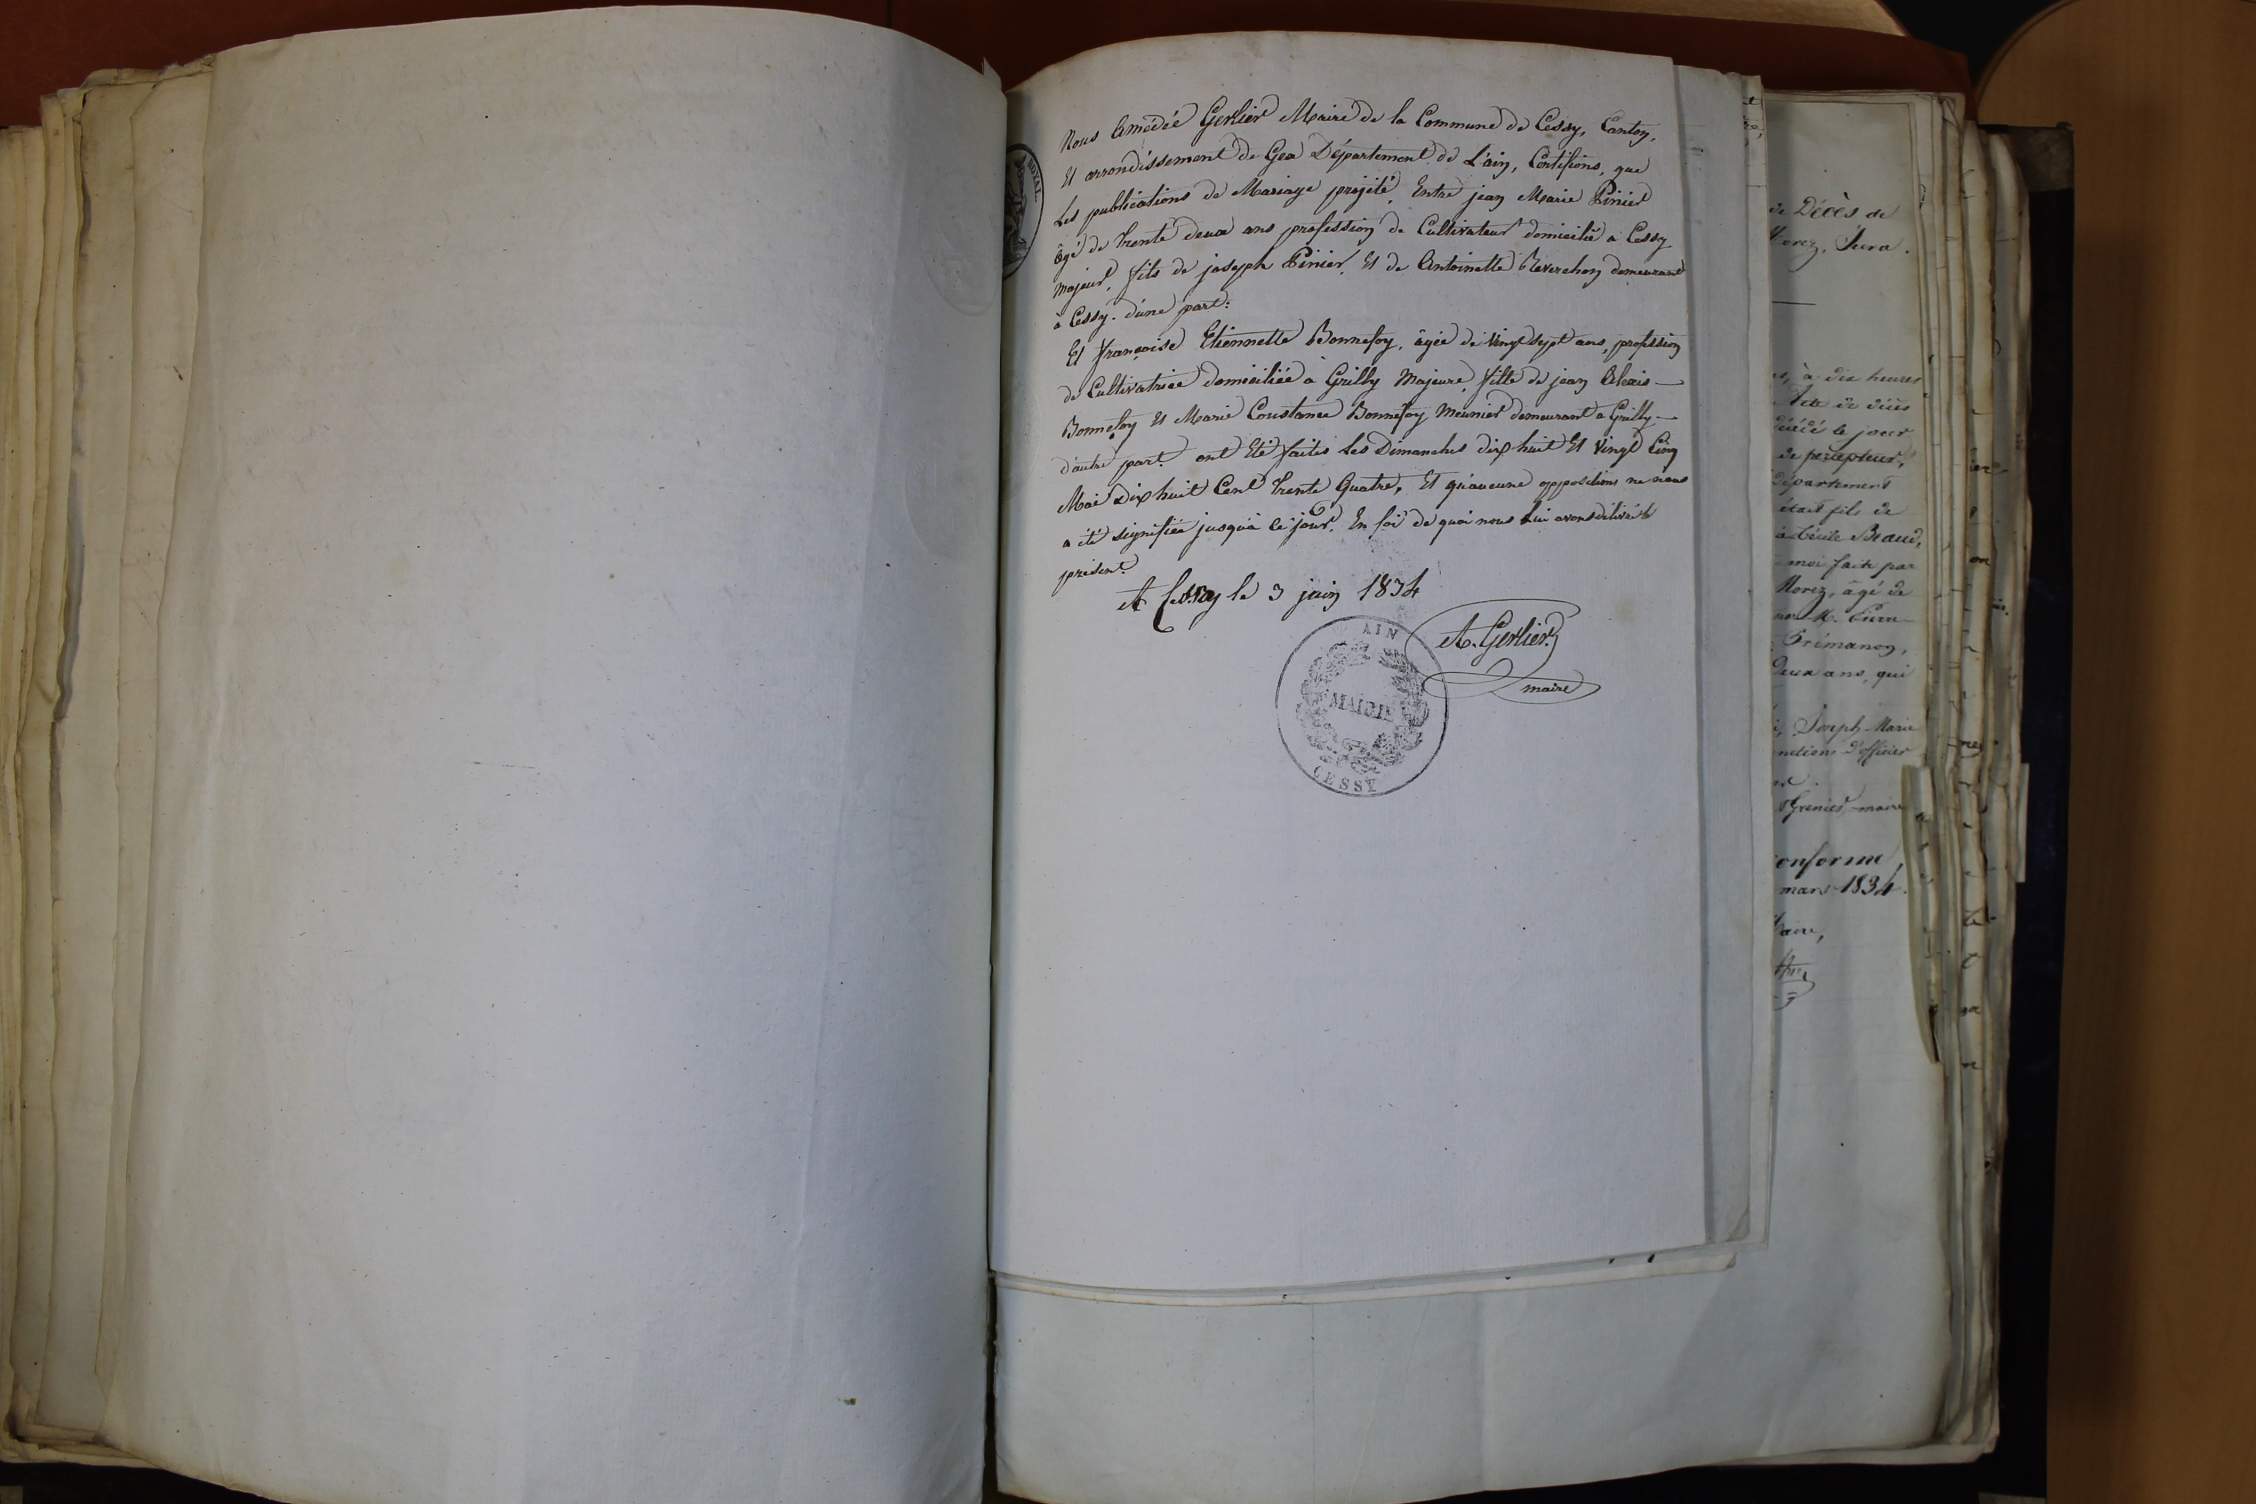 ROYAL
Nous Amédée Gerlier Maire de la Commune de Cessy, Canton,
Et arrondissement de Gex Département de L'ain, Certifions, que
Les publications de Mariage projété, Entre jean Marie Pinier
âgé de trente deux ans profession de Cultivateur domicilié a Cessy
majeur, fils de joseph Pinier, Et de Antoinette Reverchon demeurant
à Cessy. d'une part:
Et françoise Etiennette Bonnefoy, âgée de Vingt Sept ans, profession
de Cultivatrice domiciliée à Grilly Majeure, fille de jean Alexis
Bonnefoy Et Marie Constance Bonnefoy Meunier demeurant a Grilly
d'autre part. ont Eté faites les Dimanches dix huit Et Vingt Cinq
Mai dix huit Cent trente Quatre, Et qu'aucune oppositions ne nous
a été signifiée jusqu'à ce jour. En foi de quoi nous lui avons délivré le
présent.
A Cessy le 3 juin 1834
A. Gerlier
maire
AIN
MAIRIE
CESSY
de Décès de
Morez, Jura.
à dix heures
Acte de décès
décédé le jour
de percepteur,
département
était fils de
Cécile Beaud,
moi faite par
Morez, âgé de
Prémanon,
deux ans, qui
Joseph Marie
d'officier
Grenier, maire
conforme,
mars 1834.